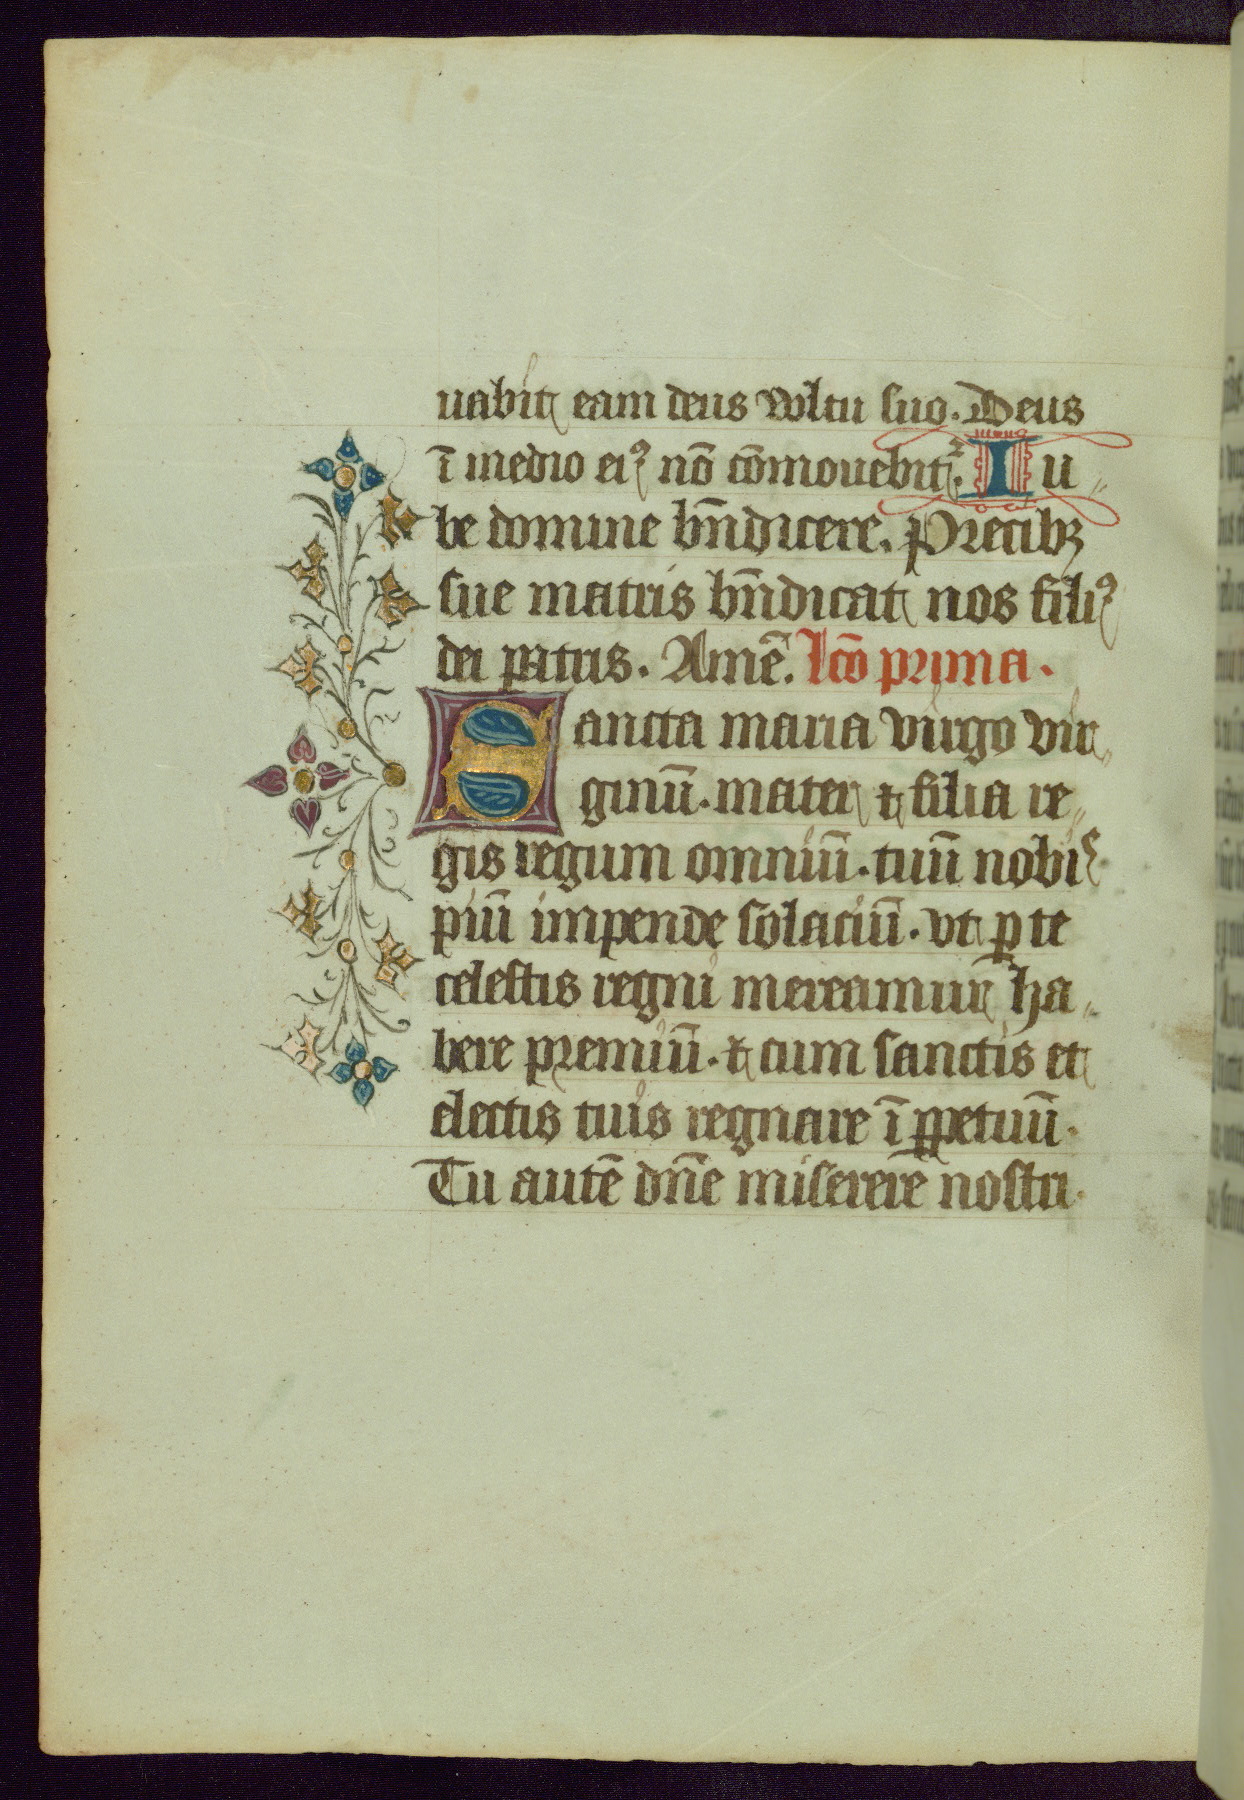 uabit eam deus vultu suo. Deus
ī medio eiꝰ nō cōmouebit᷑. Iu
be domine bn̄dicere. Precibꝫ
sue matris bn̄dicat nos filiꝰ
dei patris. Amē. lcō prima.
Sancta maria virgo vir
ginū. mater et filia re
gis regum omniū. tuū nobis
piū impende solaciū. vt ꝑ te
celestis regni mereamur ha
bere premiū. et cum sanctis et
electis tuis regnare ī ꝑpetuū.
Tu autē dn̄e miserere nostri.